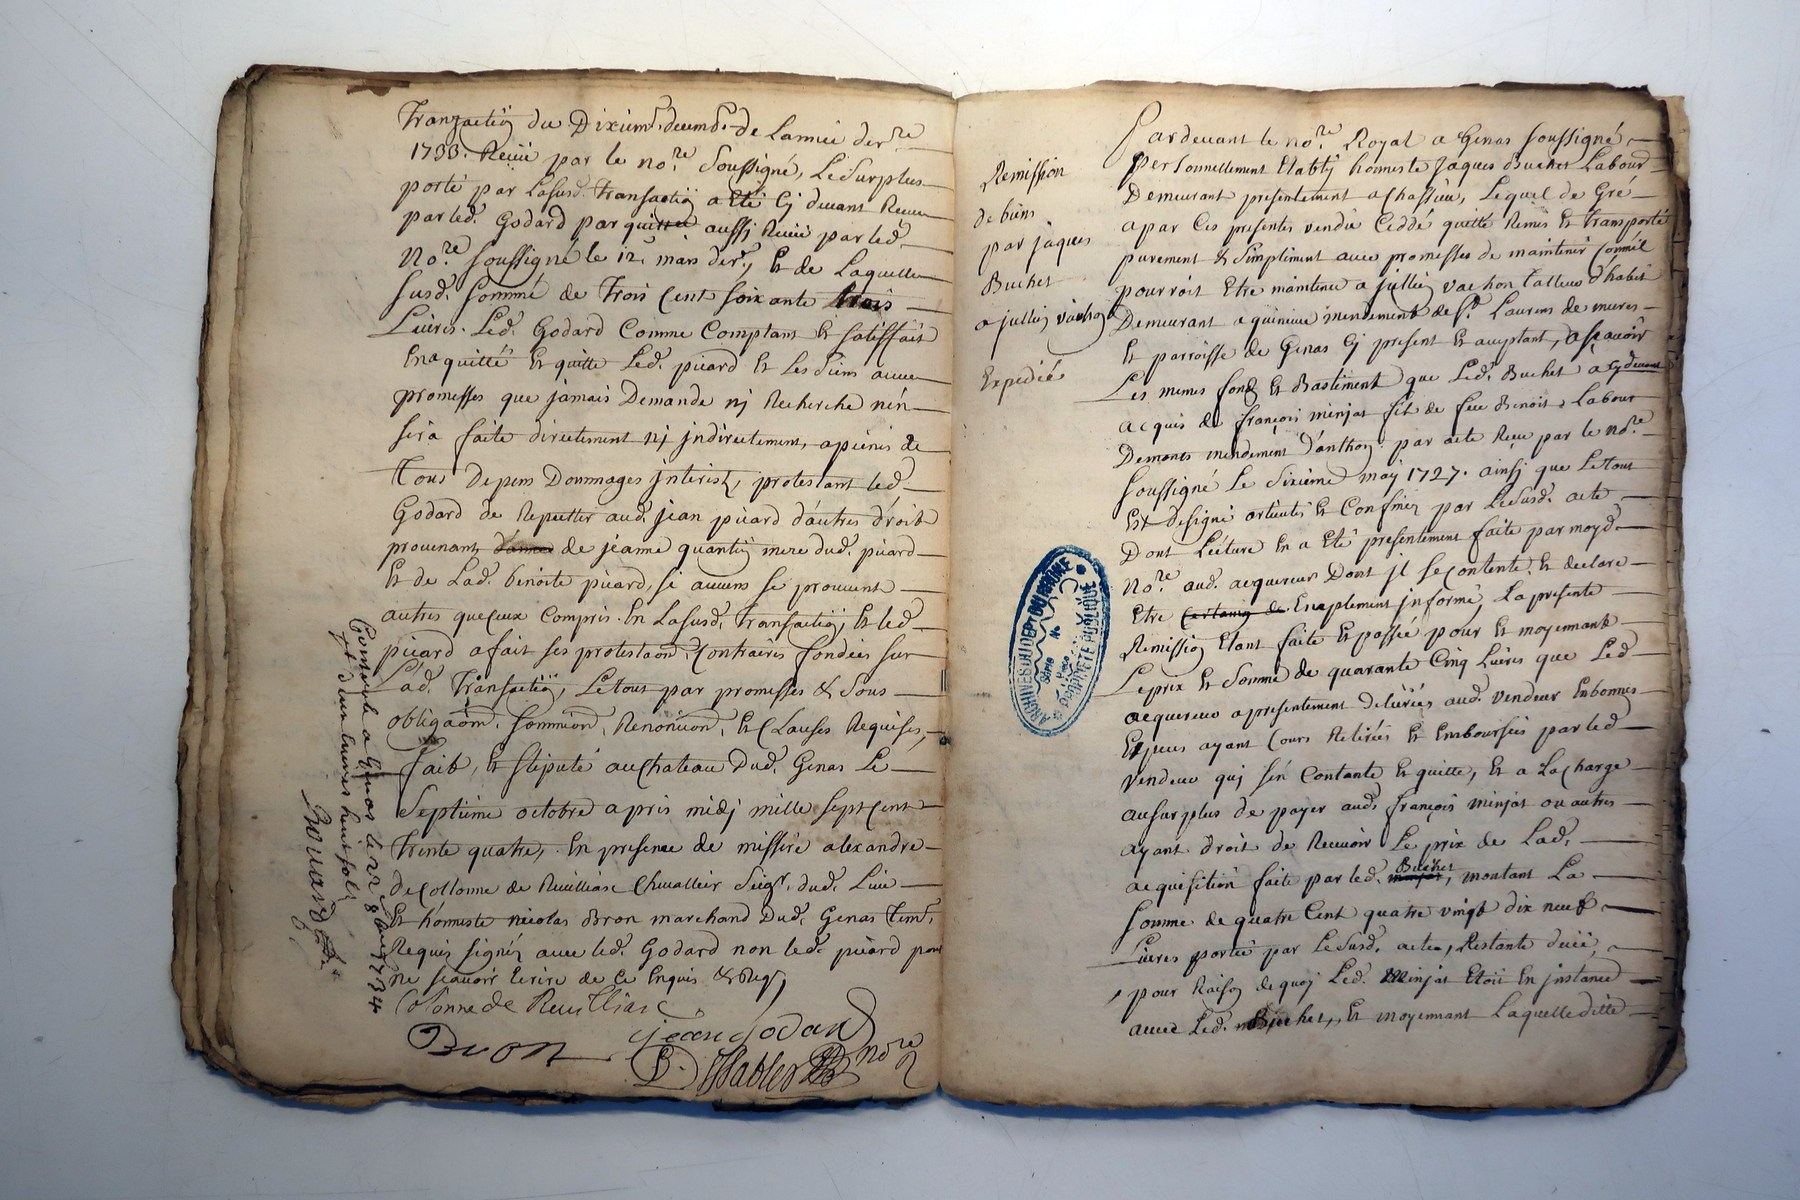 Tranzaction du Dixiem.e decemb.e de Lannée der.re
1733. Receüe par le no.re Soussigné, Le Surplus
porté par Lasusd. Transaction a Eté Cy devant Receu
par led. Godard par quittee aussy Receüe par led.
No.re soussigné le 12.e mars der., Et de Laquelle
susd. somme de Trois Cent soixante trois
Livres. Led. Godard Comme Comptant Et satisffait
En a quitté Et quitte Led. picard Et les siens avec
promesses que jamais Demande nj Recherche n'en
sera faite directement nj jndirectement, a peines de
Tous Depens Dommages jnterestz, protestant led
Godard de Repetter aud. jean picard d'autres droits
provenants de jeanne quantin mere dud. picard
Et de Lad. benoite picard, si aucuns se prouvent
autres que Ceux Compris En Lasusd. Transaction, Et led
picard a fait ses protestaõns Contraires fondées sur
Lad. Transaction, Le tous par promesses & sous
obligaõn. sommiõn, Renonciõn, Et Clauses Requises,
Fait, Et stipulé au Chateau Dud. Genas Le
Septieme octobre apres midj mille sept Cent
Trente quatre, En presence de missire alexandre
de Collonne de Reuilliasc Chevallier Seigr. dud. Lieu
Et homiste nicolas Bron marchand Dud. Genas Tem.
Requis signéz avec led. Godard non led. picard pour
ne scavoir Ecrire de Ce Enquis & Req.
Colonne de Revilliasc
Bron jean Godard
B. Sablier no.re
Controlé a Genas le 22 8bre 1734
Reçu deux livres huit sols
Bouardet
Remission
de biens
par jaques
Buchet
a jullin vachon
Expedié
Pardevant le no.re Royal a Genas soussigné
personnellement Etably homiste Jaques Buchet Labour
Demeurant presentement a Chassieu, Lequel de Gré
a par Ces presentes vendu Ceddé quitté Remis Et transporté
purement & simplement avec promesses de maintenir Comme
pourroit Etre maintenu a jullin vachon tallieur d'habit
Demeurant a quinieu mendement de St. Laurens de mures
Et parroisse de Genas Cy present Et aceptant, asçavoir
Les memes fondz Et Bastiment que Led. Buchet a cydevant
acquis de françois minjat fils de feu Benoit Labour
Demonts mendement d'anthon par acte Reçu par le no.re
soussigné Le sixieme may 1727. ainsj que Letous
Est designé orienté Et Confiné par Le susd. acte
Dont Lecture En a Eté presentement faite par moy d.
No.re aud. acquereur Dont jl se Contente & declare
Etre Certain de Enaplement jnformé, La presente
Remission Etant faite Et passée pour Et moyennant
Le prix Et Somme de quarante Cinq Livres que Led
acquereur a presentement delivrées aud. vendeur En bonnes
Especes ayant Cours Retirées Et Emboursées par led
vendeur qui s'en Contante Et quitte, Et a La Charge
au surplus de payer aud. françois minjat ou autres
ayant droit de Recevoir Le prix de Lad.
acquisition faite par led. Buchet, montant La
somme de quatre Cent quatre vingt dix neuf
Livres portée par Le susd. acte, Restante düée,
pour Raison de quoy Led. Minjat Etoit En jnstance
avec Led. Buchet, Et moyennant Laquelle dite
ARCHIVES DU DEPT DU RHÔNE
PROPRIÉTÉ PUBLIQUE